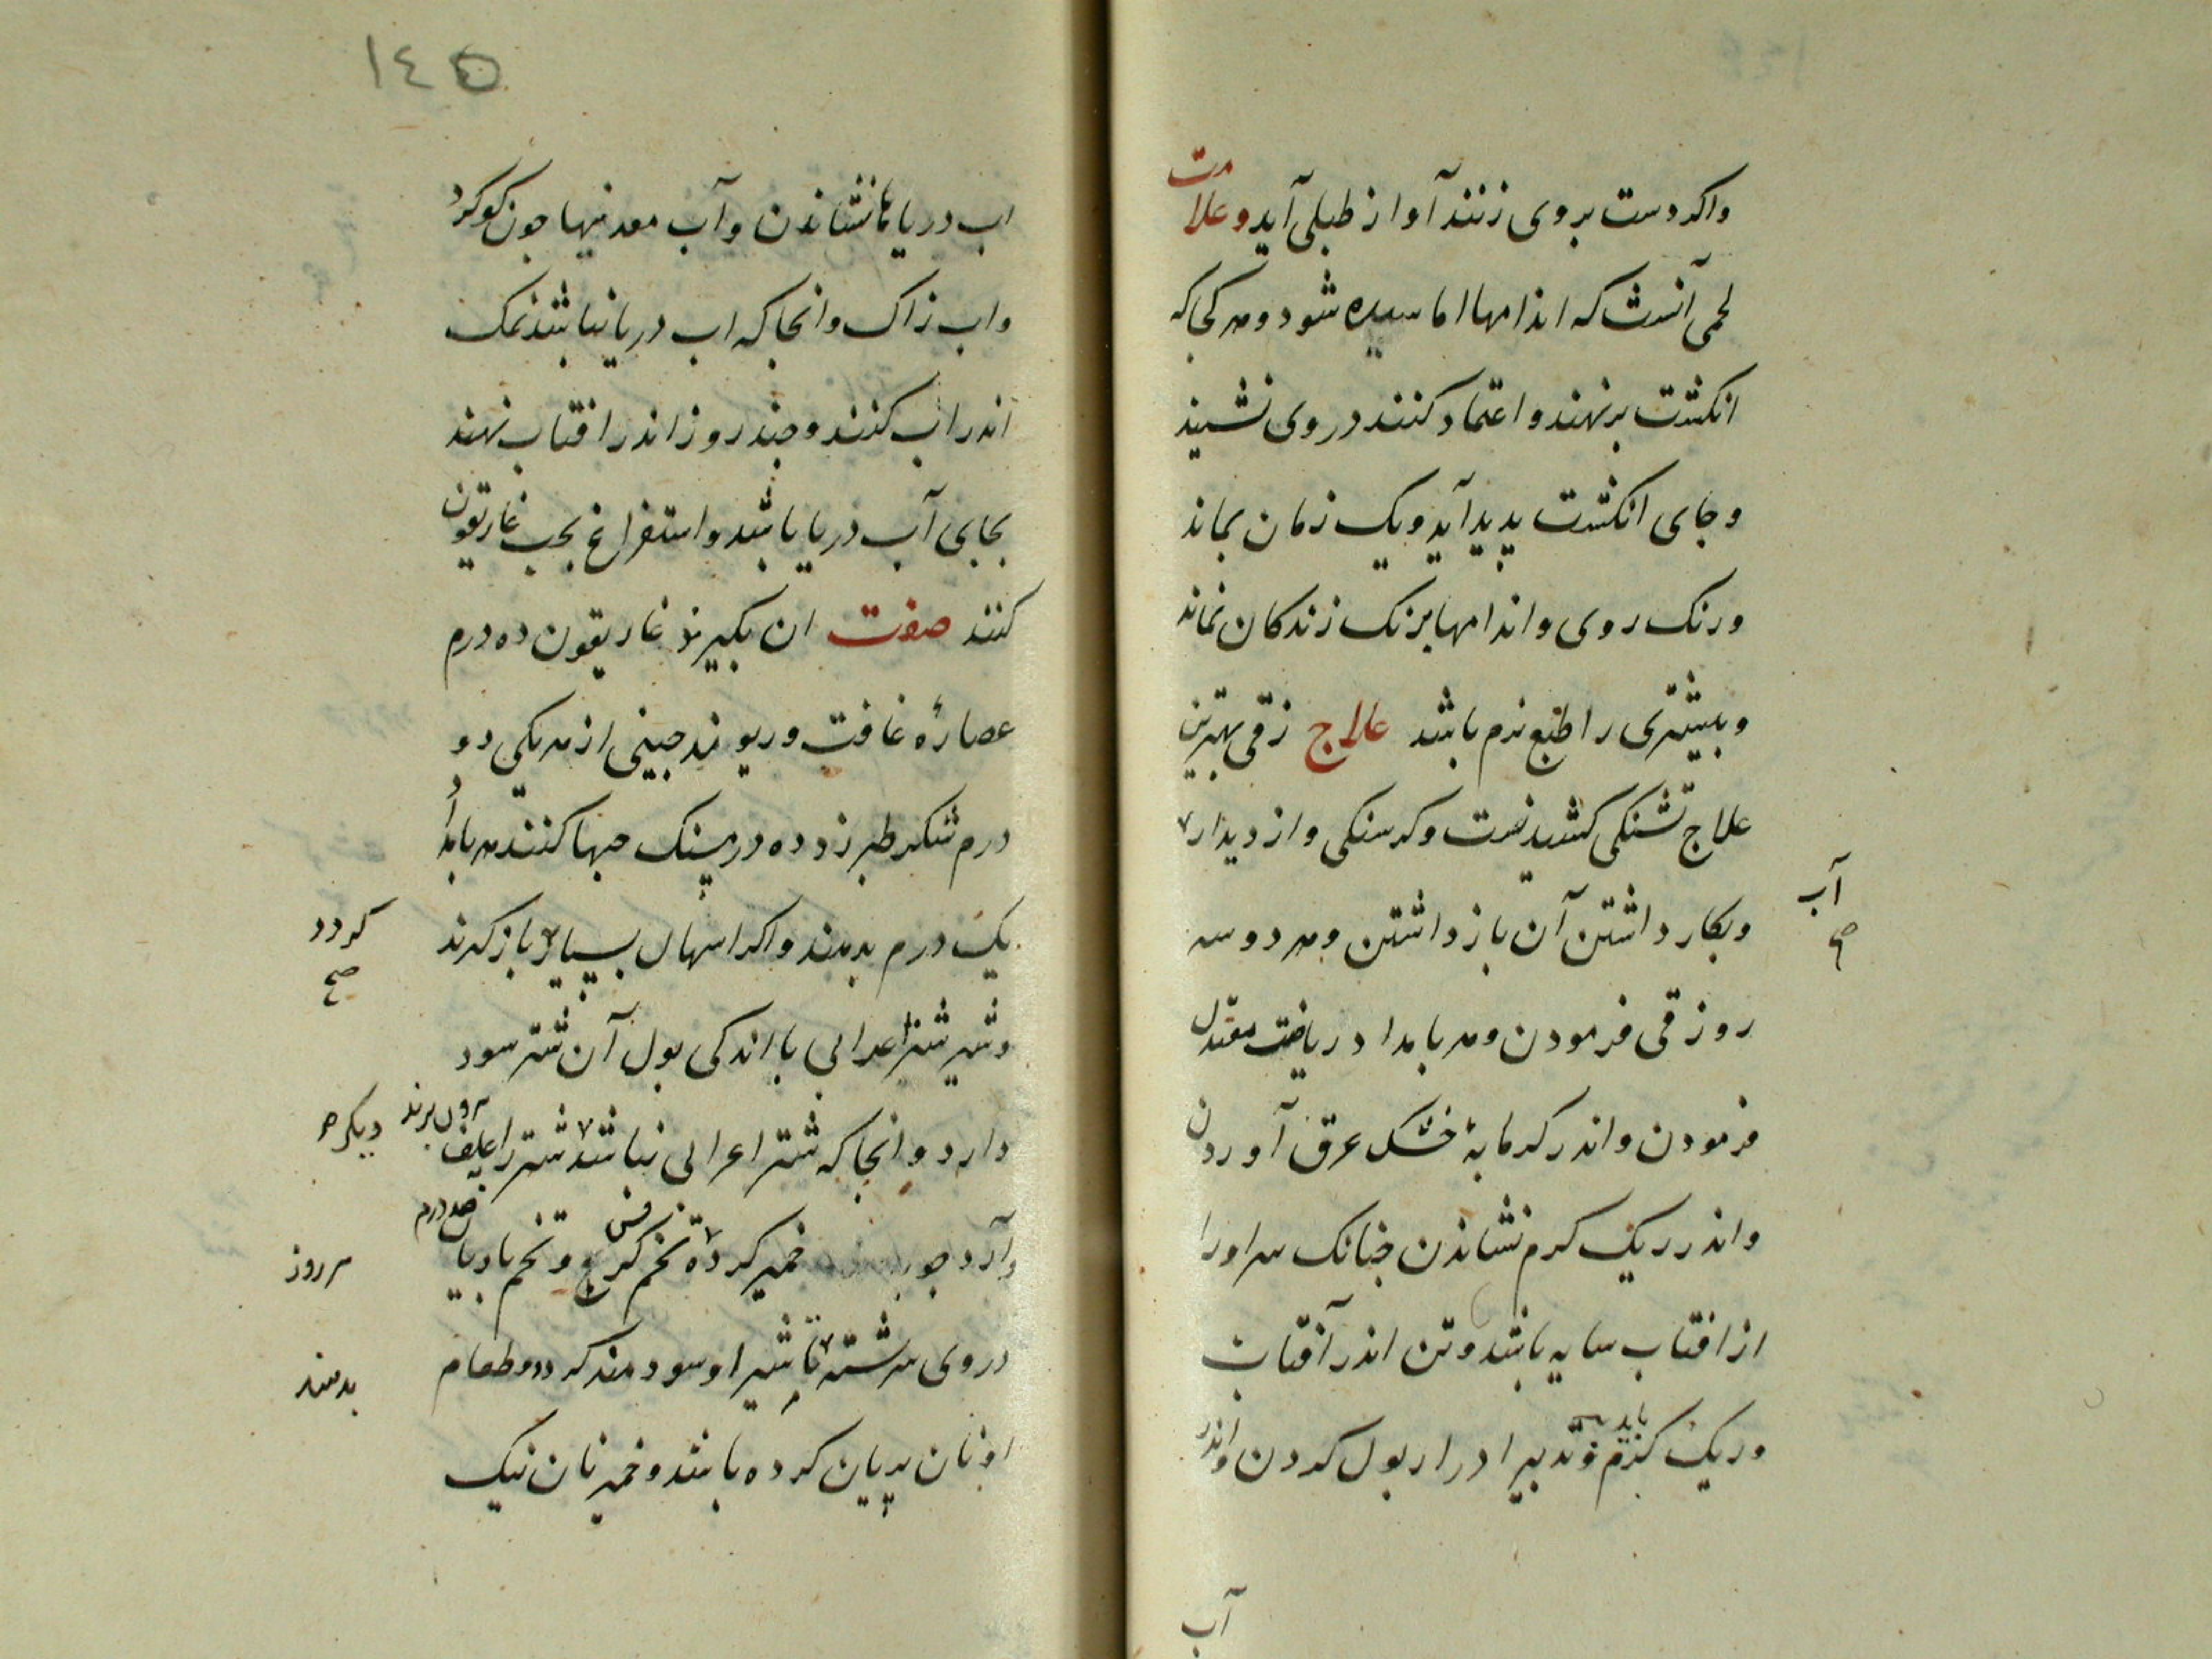 واکر دست بروی زنند آواز طبلی آید و علامت
لحمی آنست که اندامها اماسیده شود و هر کجا که
انکشت برنهند و اعتماد کنند در وی نشیند
و جای انکشت پدید آید و یک زمان بماند
و رنک روی و اندامها برنک زندکان نماند
و بیشتری را طبع نرم باشد علاج زقی بهترین
علاج تشنکی کشیدنست و کرسنکی و از دیدار
آب
صح
و بکار داشتن آن بازداشتن و هر دو سه
روز قی فرمودن و هر بامداد ریاضت معتدل
فرمودن و اندر کرمابهٔ خشک عرق آوردن
و اندر ریک کرم نشاندن جنانک سر اورا
از افتاب سایه باشد و تن اندر آفتاب
و ریک کرم باید و تدبیر ادرار بول کردن و اندر
آب
١٤٥
اب دریا نشاندن و آب معدنیها جون کوکرد
و اب زاک و انجا که اب دریا نباشد نمک
اندر اب کنند و جند روز اندر افتاب نهند
بجای آب دریا باشد و استفراغ بحب غاریقون
کنند صفت ان بکیرند غاریقون ده درم
عصارهٔ غافت و ریوند جینی از هر یکی دو
درم شکر طبرزد ده درمسنک حبها کنند هر بامداد
یک درم بدهند و اکر اسهال بسیار باز کیرند
کردد
صح
و شیر شتر اعرابی با اندکی بول آن شتر سود
دارد و انجا که شتر اعرابی نباشد شتر را علف
بیرون برند
دیکر
و آرد جو خمیر کرده تخم کرفس و تخم بادیا
صد درم
سه روز
در وی سرشته تا شیر او سودمند کردد و طعام
بدهند
او نان بریان کرده باشد و خمیر نان نیک